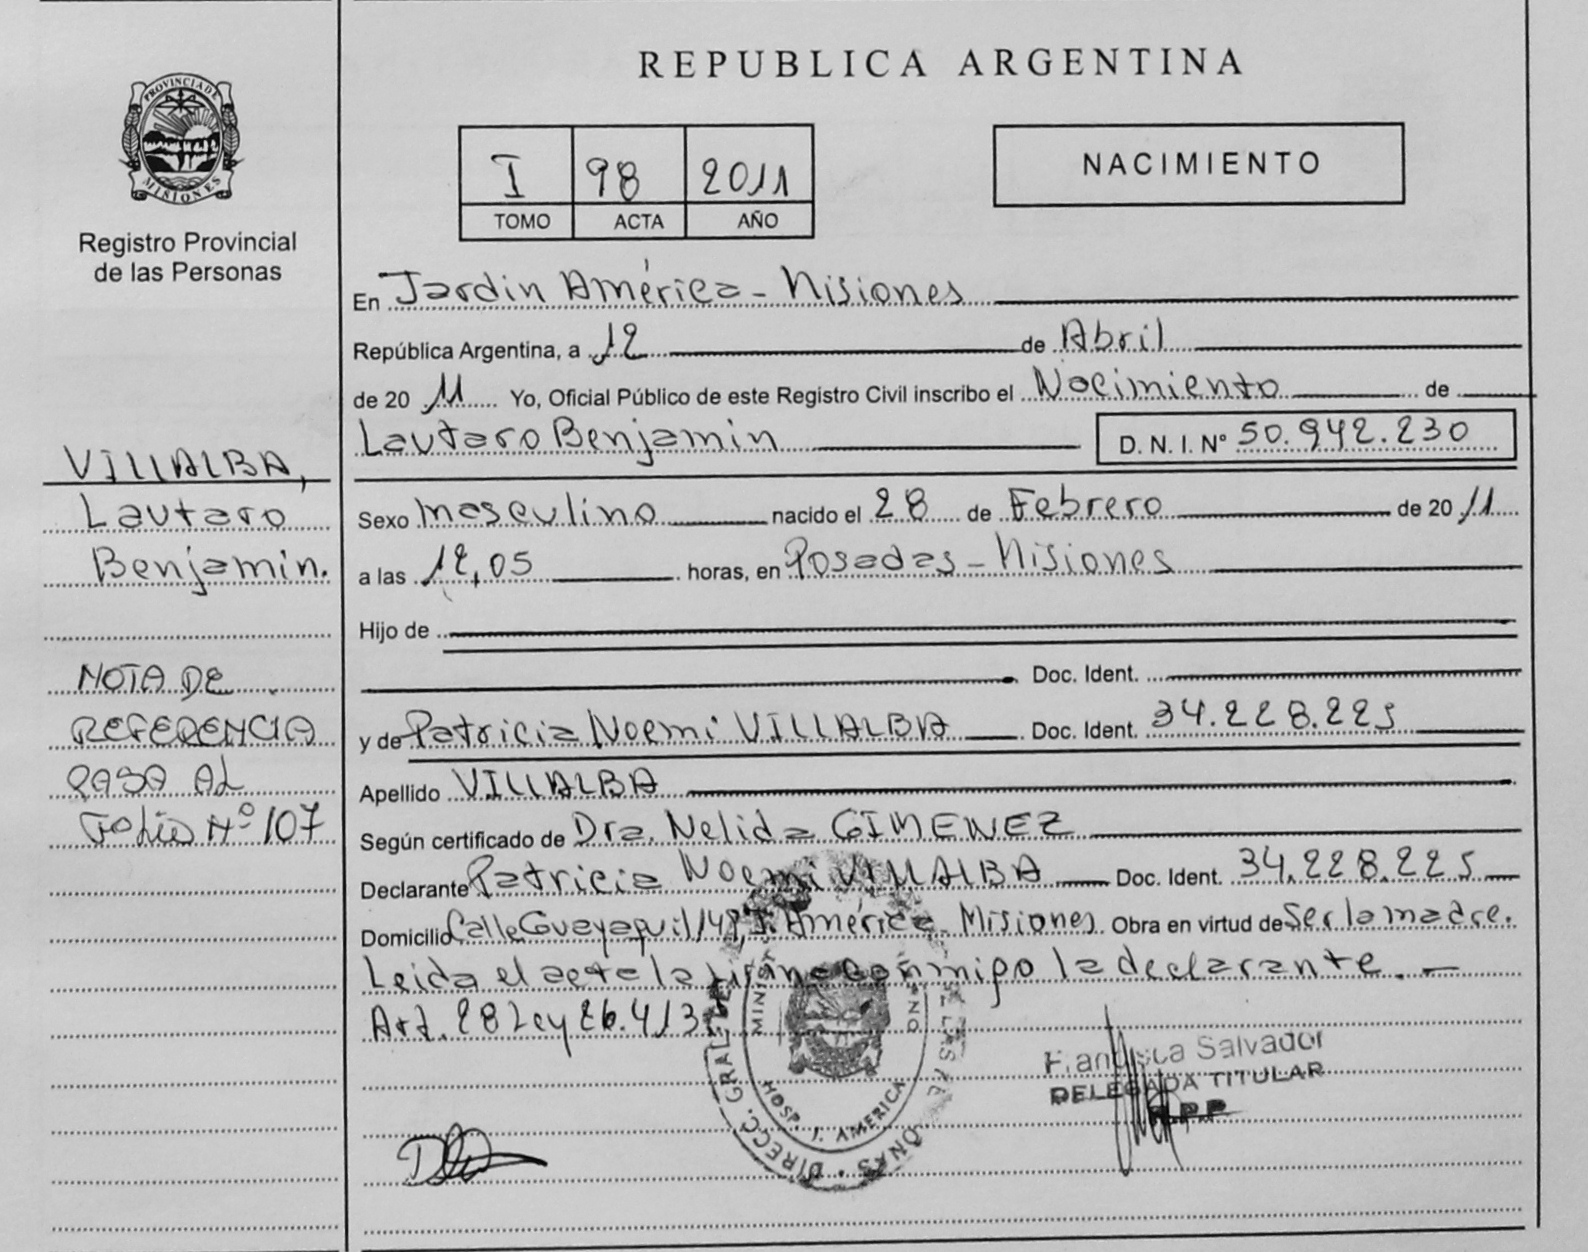 PROVINCIA DE
MISIONES
Registro Provincial
de las Personas
REPUBLICA ARGENTINA
I 98 2011
TOMO ACTA AÑO
NACIMIENTO
En Jardin América - Misiones
República Argentina, a 12 de Abril
de 20 11 Yo, Oficial Público de este Registro Civil inscribo el Nacimiento de
Lautaro Benjamin D. N. I. Nº 50.942.230
Sexo masculino nacido el 28 de Febrero de 20 11
a las 12,05 horas, en Posadas - Misiones
Hijo de
Doc. Ident.
y de Patricia Noemi VILLALBA Doc. Ident. 34.228.225
Apellido VILLALBA
Según certificado de Dra. Nelida GIMENEZ
Declarante Patricia Noemi VILLALBA Doc. Ident. 34.228.225
Domicilio Calle Guayaquil 148, J. América - Misiones. Obra en virtud de ser la madre.
Leida el acta la firma conmigo la declarante. -
Art. 28 Ley 26.413
VILLALBA,
Lautaro
Benjamin.
NOTA DE
REFERENCIA
PASA AL
Folio Nº 107
HOSP. J. AMERICA
DIRECC. GRAL. DE
Francisca Salvador
DELEGADA TITULAR
R.P.P